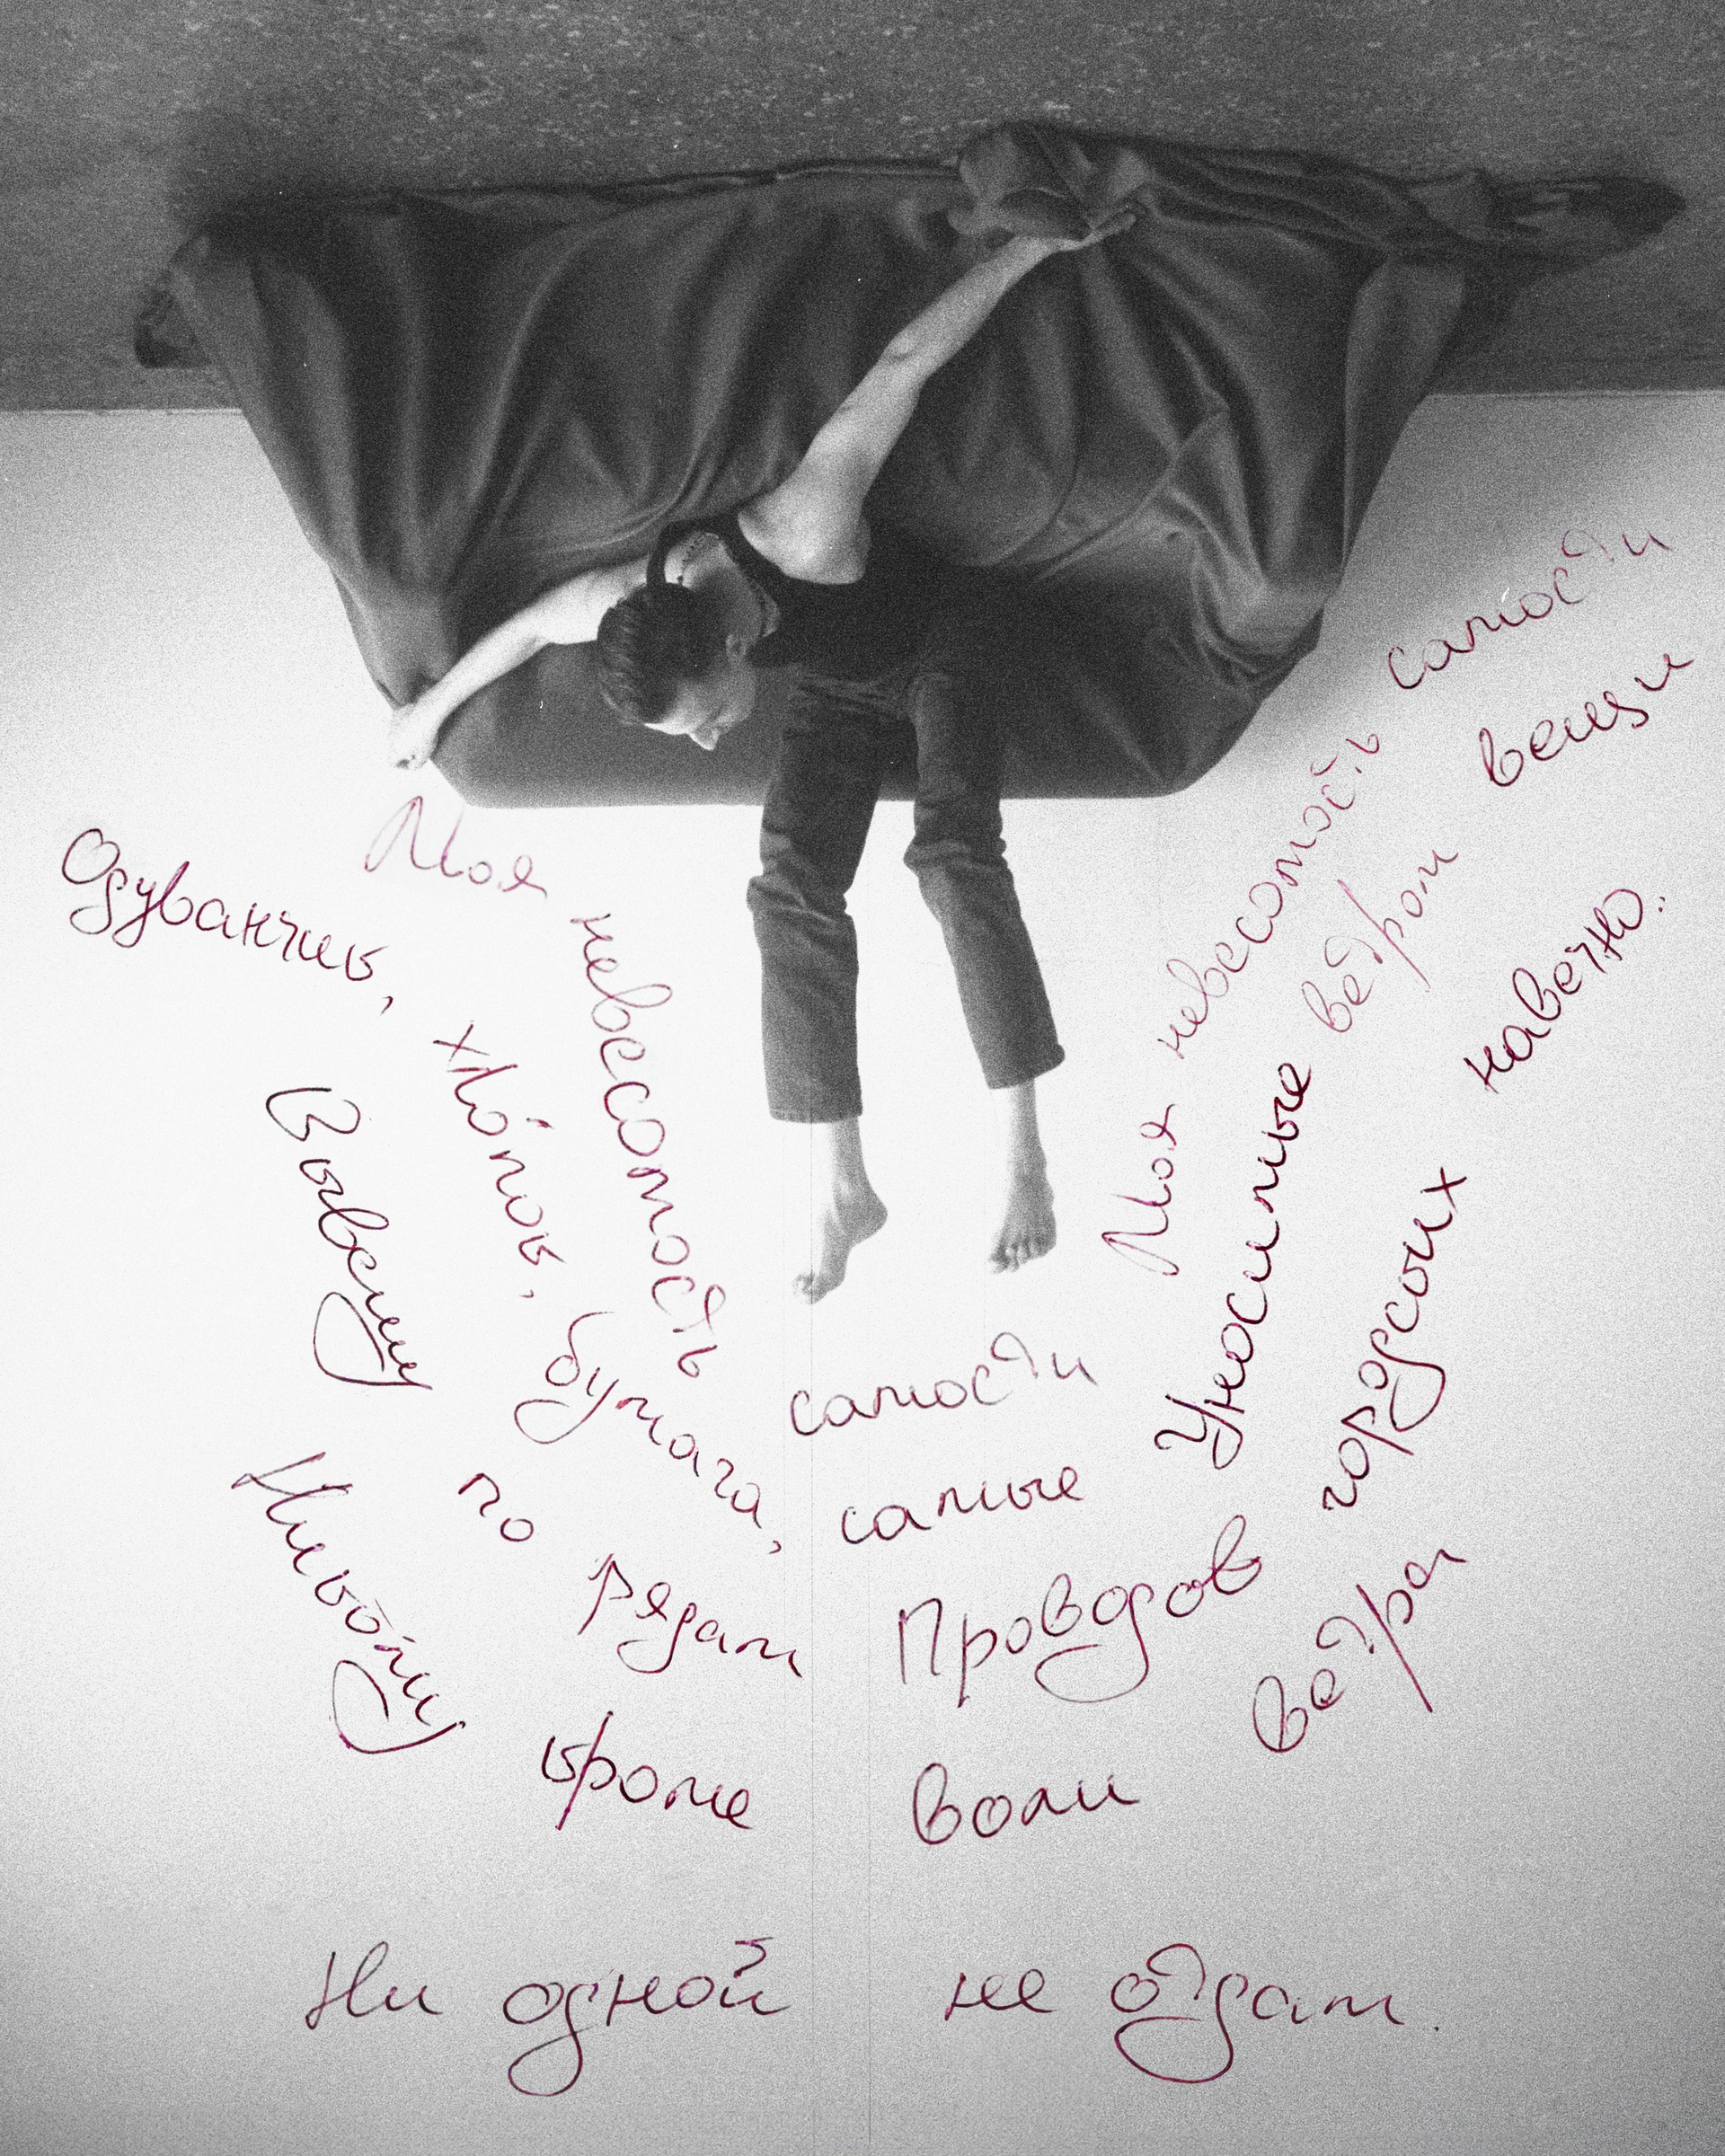 Моя невесомость самости Моя невесомость самости
Одуванчик, хло́пок, бумага, самые Уносимые ветром вещи
Вывешу по рядам Проводов городских навечно..
Никому кроме воли ветра
Ни одной не отдам.